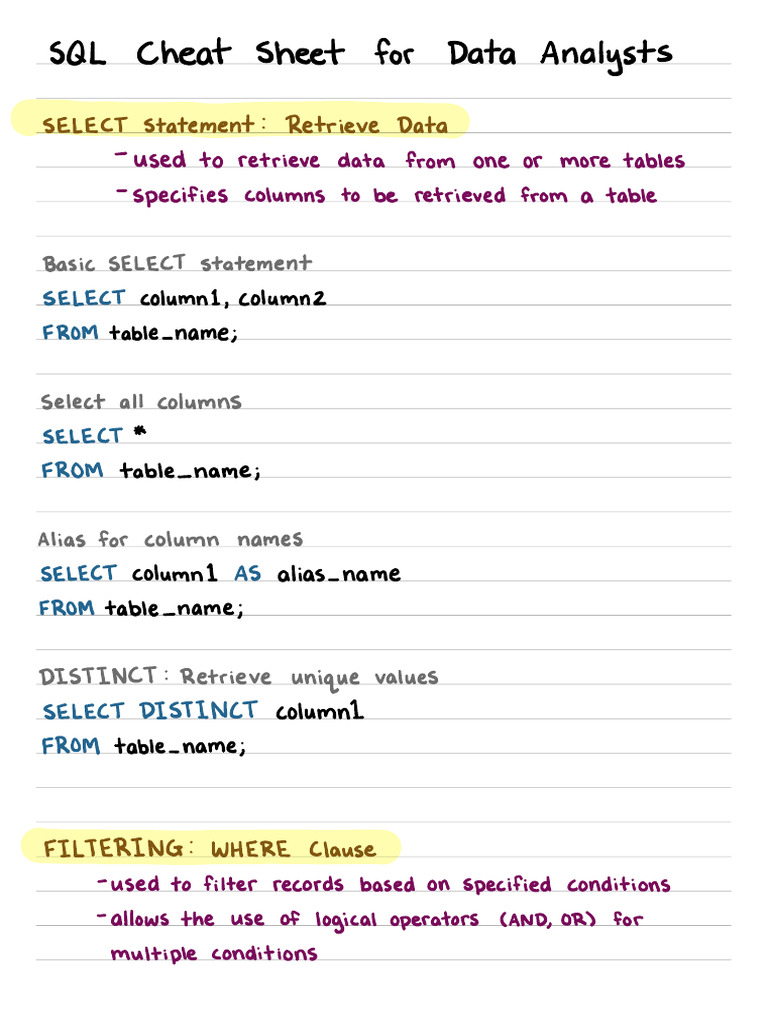 SQL Cheat Sheet for Data Analysts
SELECT statement: Retrieve Data
- used to retrieve data from one or more tables
- specifies columns to be retrieved from a table
Basic SELECT statement
SELECT column1, column2
FROM table_name;
Select all columns
SELECT *
FROM table_name;
Alias for column names
SELECT column1 AS alias_name
FROM table_name;
DISTINCT: Retrieve unique values
SELECT DISTINCT column1
FROM table_name;
FILTERING: WHERE Clause
- used to filter records based on specified conditions
- allows the use of logical operators (AND, OR) for
multiple conditions